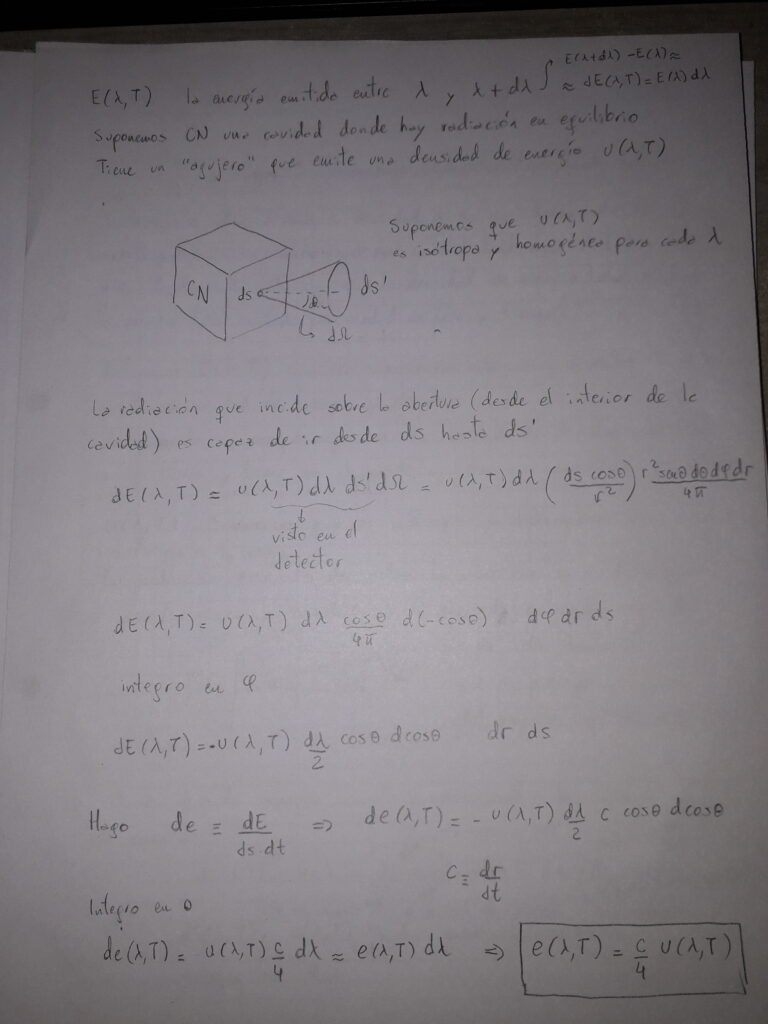 E(λ,T) la energía emitida entre λ y λ+dλ ∫ E(λ+dλ) - E(λ) ≈
≈ dE(λ,T) = E(λ) dλ
Suponemos CN una cavidad donde hay radiación en equilibrio
Tiene un "agujero" que emite una densidad de energía u(λ,T)
Suponemos que u(λ,T)
es isótropa y homogénea para cada λ
CN ds θ ds'
dΩ
La radiación que incide sobre la abertura (desde el interior de la
cavidad) es capaz de ir desde ds hasta ds'
dE(λ,T) = u(λ,T) dλ ds' dΩ = u(λ,T) dλ (ds cosθ / r²) r² senθ dθ dφ dr / 4π
visto en el
detector
dE(λ,T) = u(λ,T) dλ cosθ/4π d(-cosθ) dφ dr ds
integro en φ
dE(λ,T) = -u(λ,T) dλ/2 cosθ dcosθ dr ds
Hago de ≡ dE/ds·dt ⇒ de(λ,T) = -u(λ,T) dλ/2 c cosθ dcosθ
c ≡ dr/dt
Integro en θ
de(λ,T) = u(λ,T) c/4 dλ ≈ e(λ,T) dλ ⇒ e(λ,T) = c/4 u(λ,T)